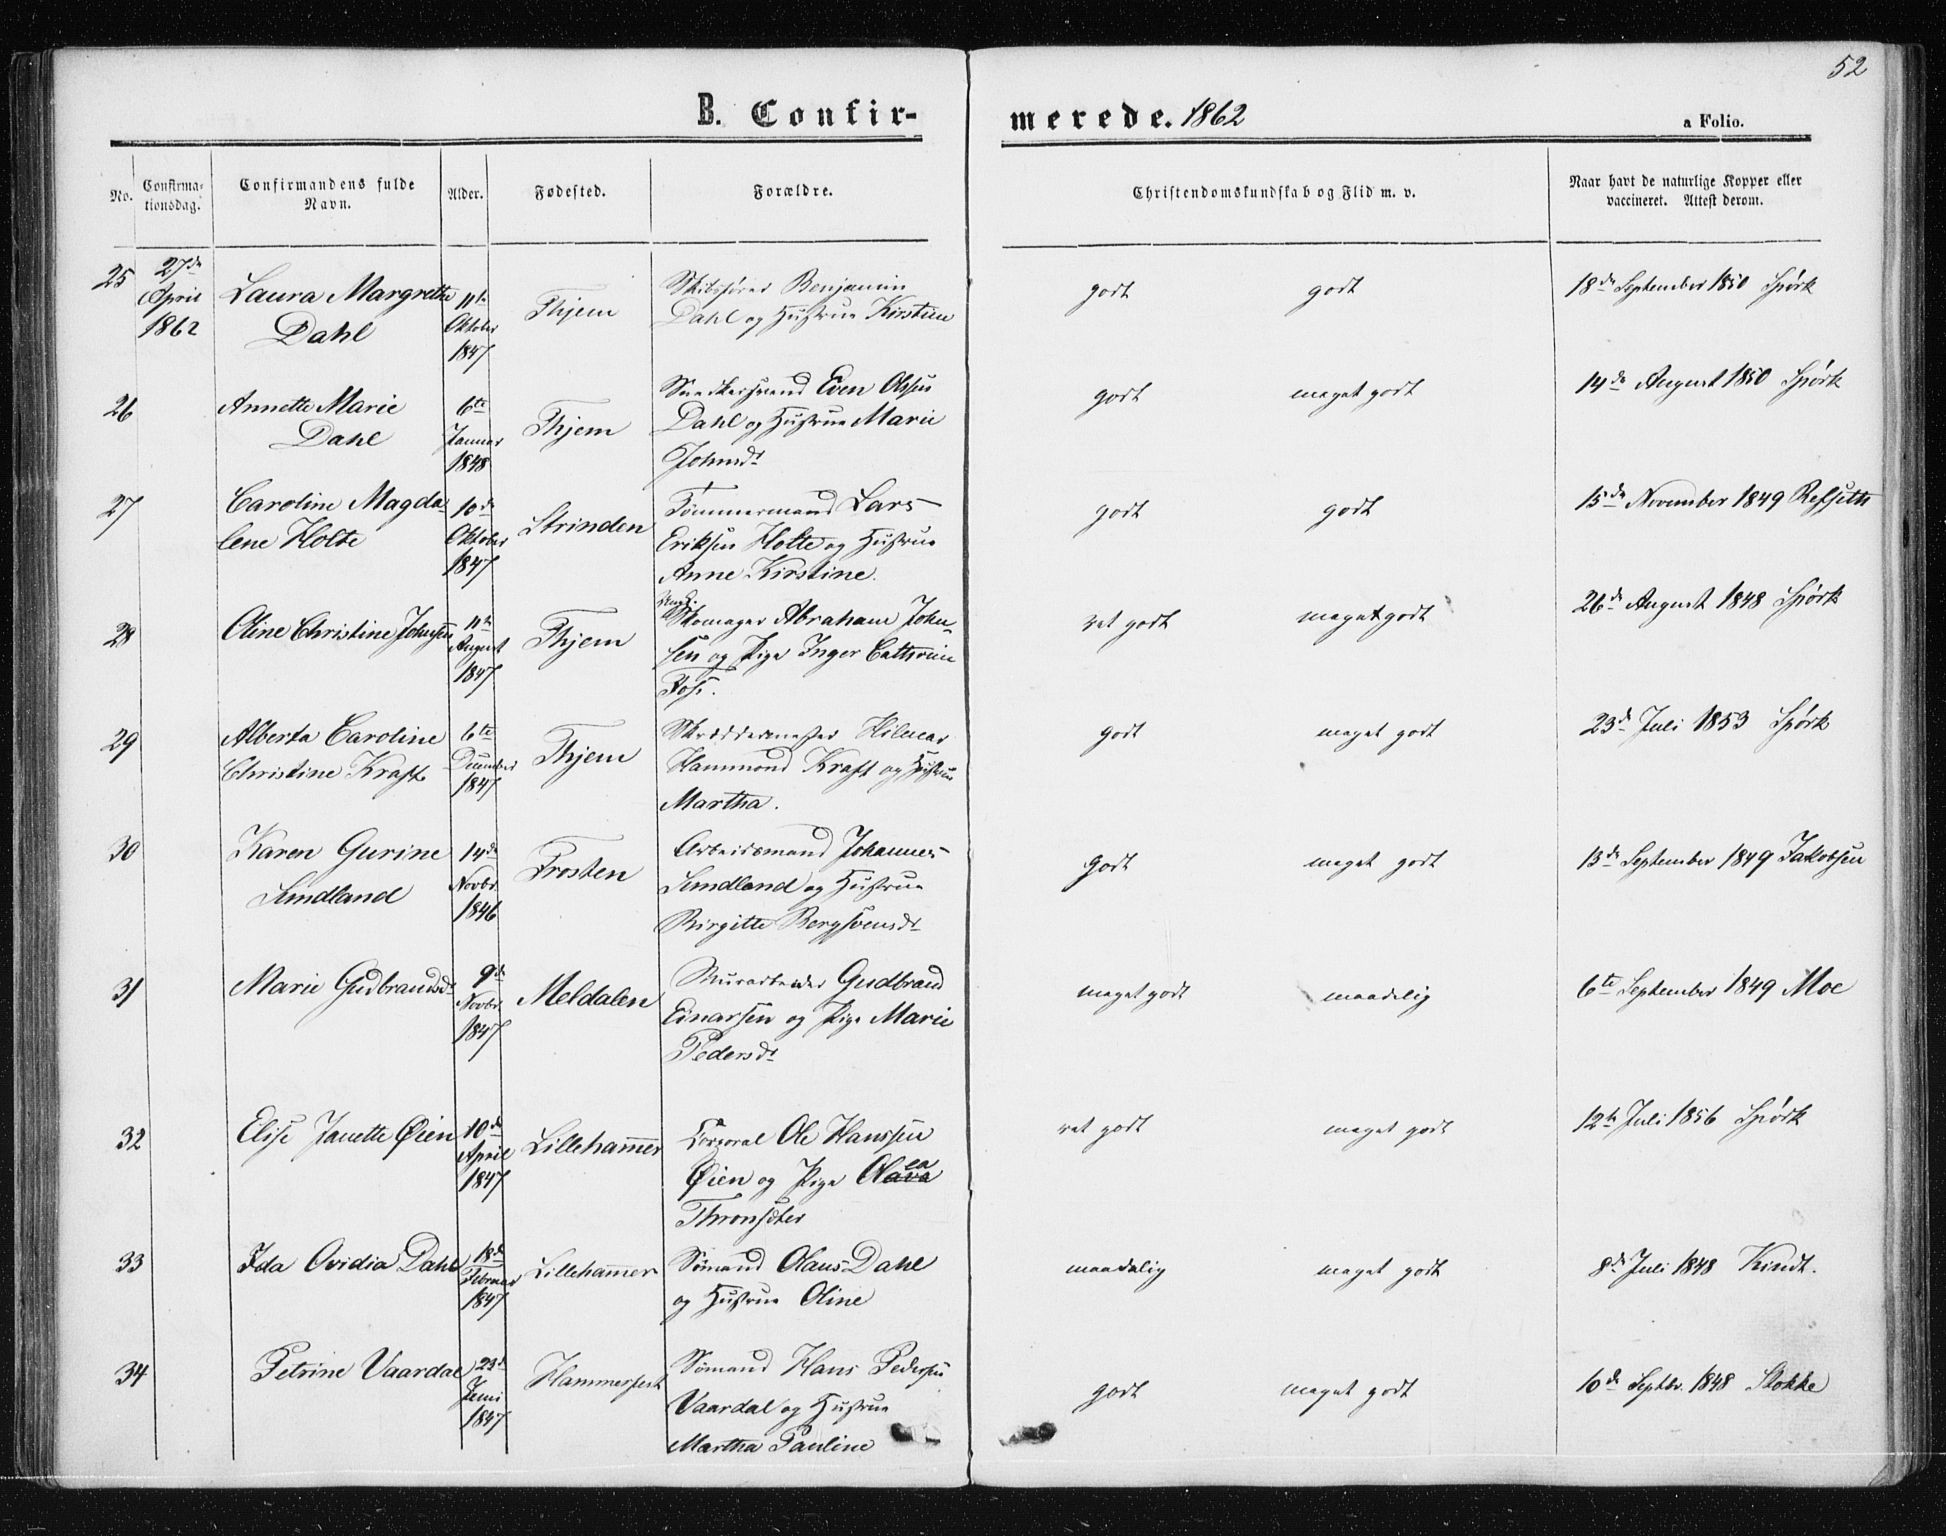 52
B. Confir-
merede. 1862
a Folio.
No.
Confirma-
tionsdag.
Confirmandens fulde
Navn.
Alder.
Fødested.
Forældre.
Christendomskundskab og Flid m. v.
Naar havt de naturlige Kopper eller
vaccineret. Attest derom.
25
27de
April
1862
Laura Margrethe
Dahl
11te
Oktober
1847
Thjem
Skibsfører Benjamin
Dahl og Hustrue Kirstine
godt
godt
18de September 1850 Spörk
26
Annette Marie
Dahl
6te
Januar
1848
Thjem
Snedkersvend Even Olsen
Dahl og Hustrue Marie
Johnsdt
godt
meget godt
14de August 1850 Spörk
27
Caroline Magda-
lene Holte
10de
Oktober
1847
Strinden
Tømmermand Lars
Eriksen Holte og Hustrue
Anne Kirstine.
godt
godt
15de November 1849 Refseth
28
Oline Christine Johnsen
11te
August
1847
Thjem
Ungk.
Skomager Abraham John-
sen og Pige Inger Cathrine
Foss.
ret godt
meget godt
26de August 1848 Spörk
29
Alberta Caroline
Christine Kraft
6te
December
1847
Thjem
Skræddermester Hilmar
Hammond Kraft og Hustrue
Martha.
godt
meget godt
23de Juli 1853 Spörk
30
Karen Gurine
Sundland
14de
Novbr.
1846
Frosten
Arbeidsmand Johannes
Sundland og Hustrue
Birgitte Bergsvensdt
godt
meget godt
13de September 1849 Jakobsen
31
Marie Gudbrandsdt
9de
Novbr.
1847
Meldalen
Murarbeider Gudbrand
Einarsen og Pige Marie
Pedersdt
meget godt
maadelig
6te September 1849 Moe
32
Elise Janette Øien
10de
April
1847
Lillehammer
Corporal Ole Hanssen
Øien og Pige Olava
ea
Thronsdter
ret godt
meget godt
12te Juli 1856 Spörk
33
Ida Ovidia Dahl
18de
Februar
1847
Lillehammer
Sömand Olaus Dahl
og Hustrue Oline
maadelig
meget godt
8de Juli 1848 Kindt.
34
Petrine Vaardal
23de
Juni
1847
Hammerfest
Sömand Hans Pedersen
Vaardal og Hustrue
Martha Pauline
godt
meget godt
10de Septbr. 1848 Stokke